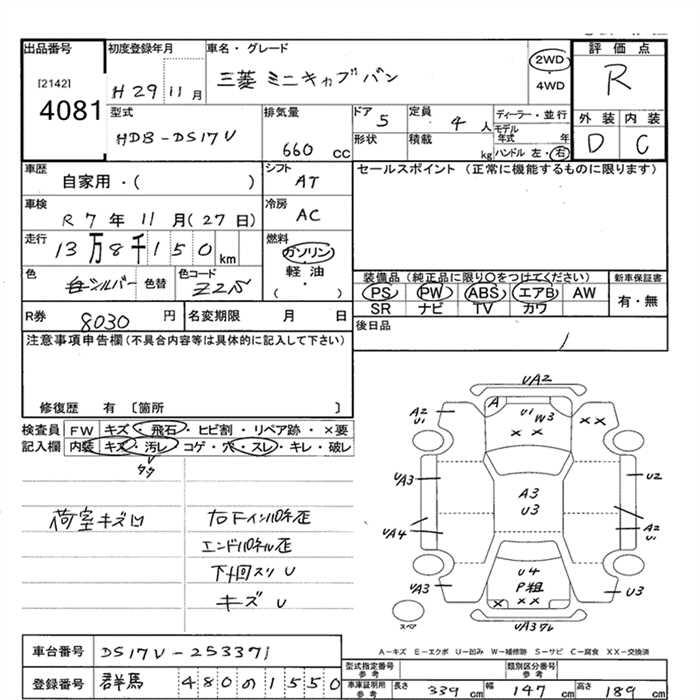 出品番号
[2142]
4081
初度登録年月
H 29 11 月
車名・グレード
三菱 ミニキャブバン
2WD
4WD
評価点
R
型式
HDB-DS17V
排気量
660 cc
ドア 5
形状
定員 4 人
積載 kg
ディーラー・並行
モデル年式 年
ハンドル 左・右
外装 内装
D C
車歴
自家用・( )
シフト
AT
セールスポイント (正常に機能するものに限ります)
車検
R 7 年 11 月 (27 日)
冷房
AC
走行
13万8千150 km
燃料
ガソリン
軽油
( ・ )
色
シルバー
色替
色コード
装備品(純正品に限り〇をつけてください)
PS PW ABS エアB AW
SR ナビ TV カワ
新車保証書
有・無
R券 8030 円
名変期限 月 日
後日品
注意事項申告欄(不具合内容等は具体的に記入して下さい)
修復歴 有 [箇所 ]
検査員 FW キズ・飛石・ヒビ割・リペア跡・×要
記入欄 内装 キズ・汚レ・コゲ・穴・スレ・キレ・破レ
荷室キズ凹
右Fインパネ歪
エンドパネル歪
下回スリ U
キズ U
UA2
A
U1
W3
××
A2
U1
××
UA3
A3
U3
U2
UA4
A2
U1
UA3
U4
P粗
×××
U3
スペア
A-キズ E-エクボ U-凹み W-補修跡 S-サビ C-腐食 XX-交換済
車台番号 DS17V-253371
登録番号 群馬 480の1550
型式指定番号
参考
類別区分番号
参考
車庫証明用
参考
長さ 339 cm 幅 147 cm 高さ 189 cm